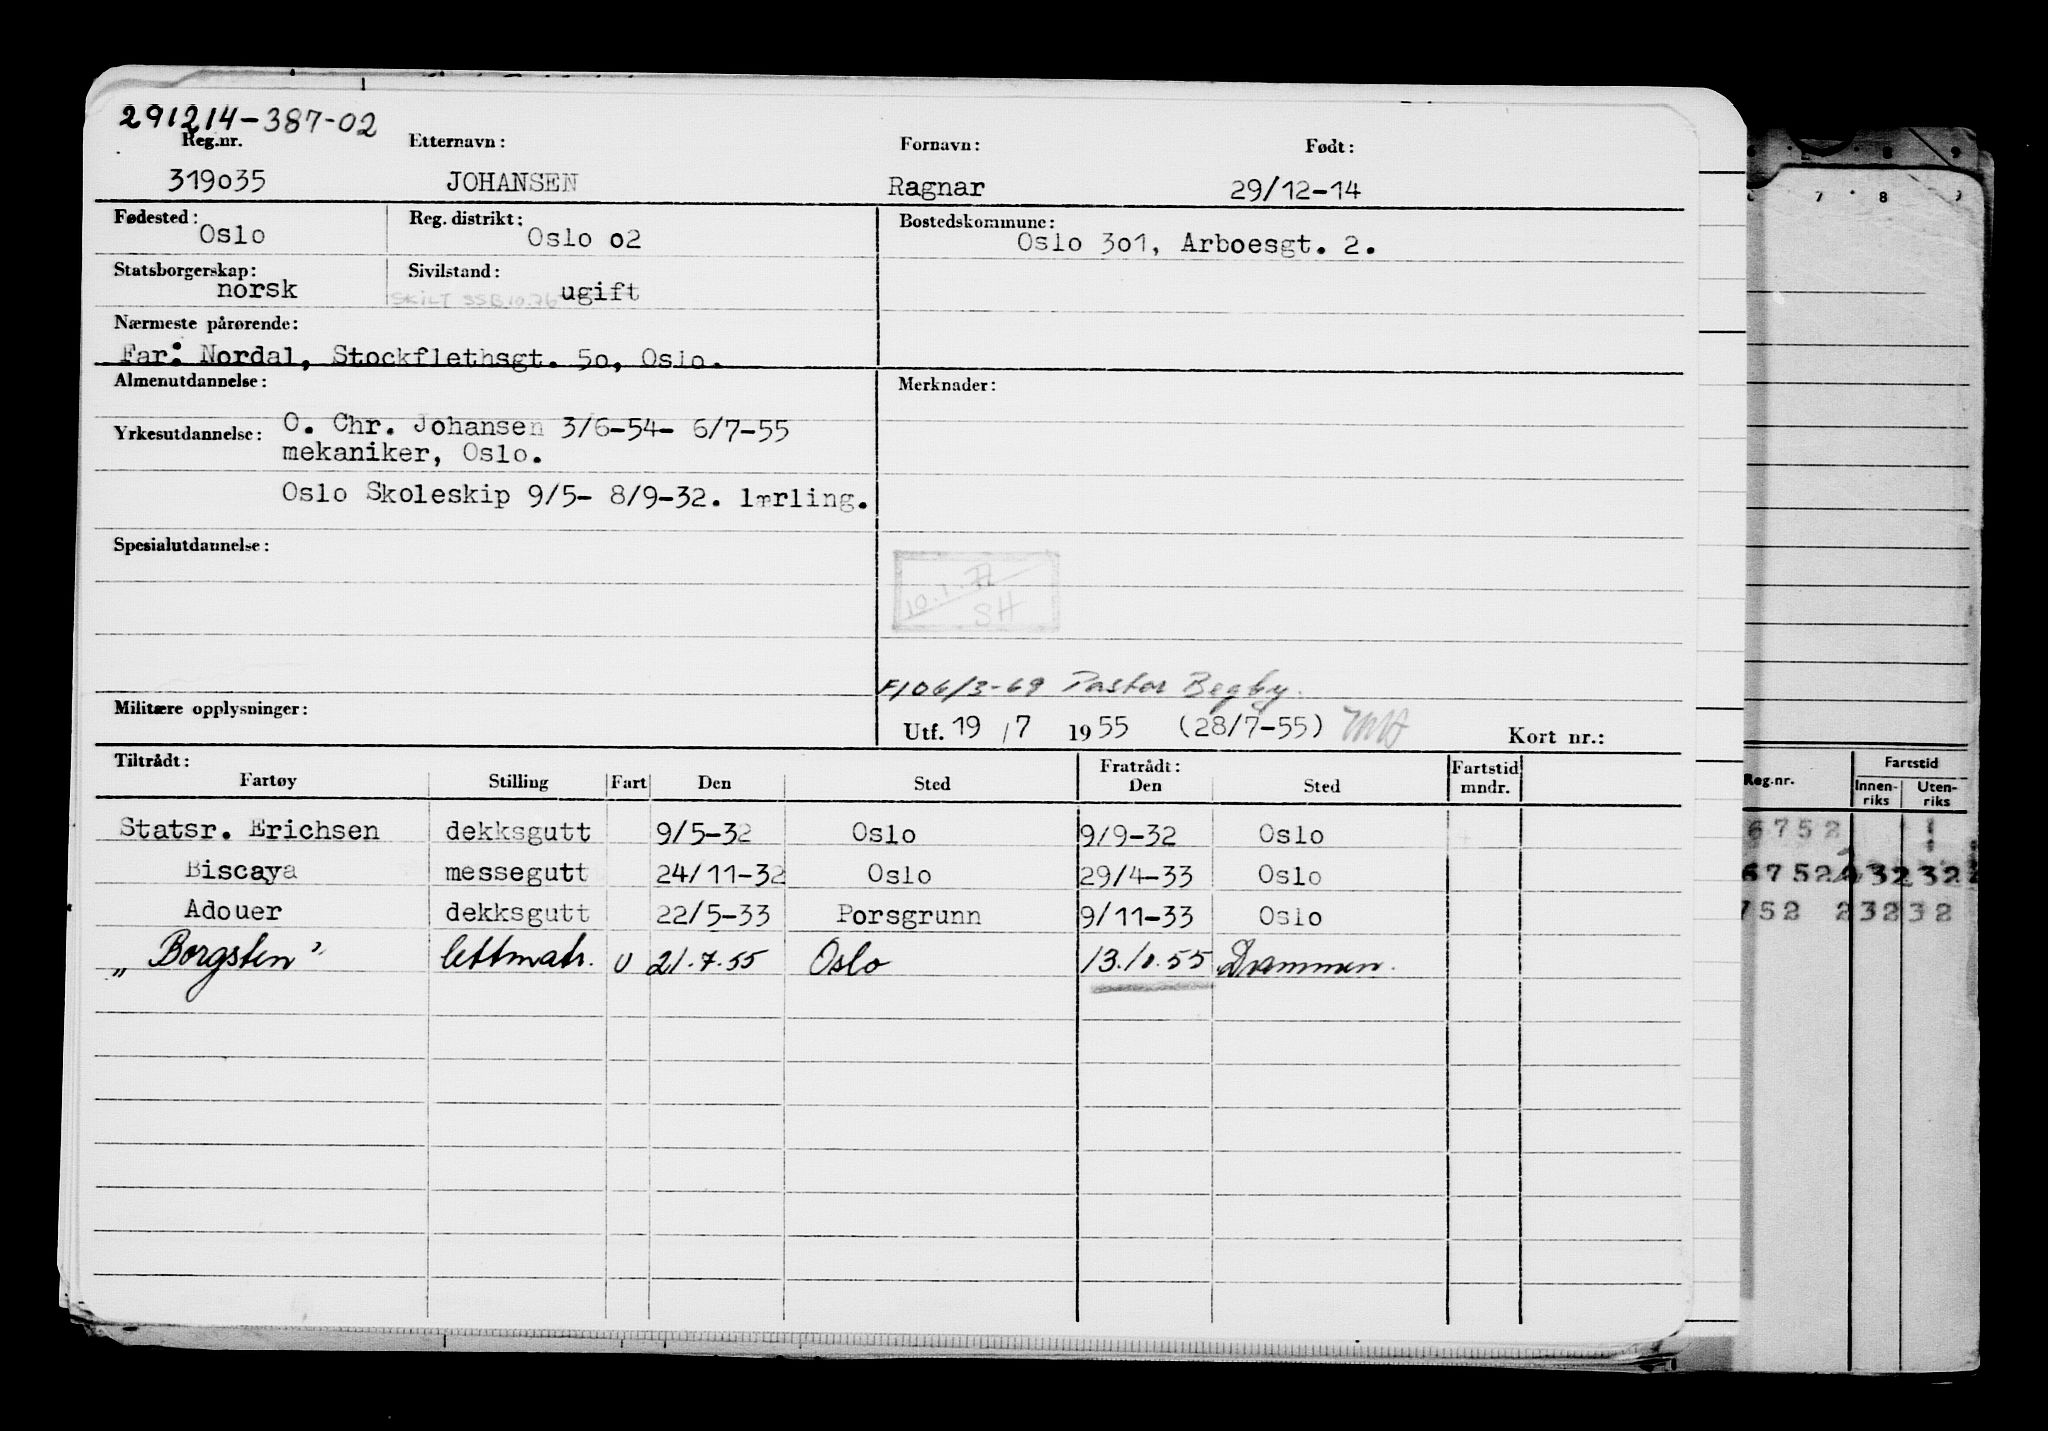 291214-387-02
Reg.nr. Etternavn: Fornavn: Født:
319035 JOHANSEN Ragnar 29/12-14
Fødested: Reg. distrikt: Bostedskommune:
Oslo Oslo 02 Oslo 301, Arboesgt. 2.
Statsborgerskap: Sivilstand:
norsk SKILT SSB 10.76 ugift
Nærmeste pårørende:
Far: Nordal, Stockflethsgt. 50, Oslo.
Almenutdannelse: Merknader:
Yrkesutdannelse: O. Chr. Johansen 3/6-54- 6/7-55
mekaniker, Oslo.
Oslo Skoleskip 9/5- 8/9-32. lærling.
Spesialutdannelse:
10.1.
SH
6/3-69 Pastor Begby.
Militære opplysninger:
Utf. 19 /7 1955 (28/7-55) Kort nr.:
Tiltrådt: Fratrådt:
Fartøy Stilling Fart Den Sted Den Sted Fartstid mndr.
Statsr. Erichsen dekksgutt 9/5-32 Oslo 9/9-32 Oslo
Biscaya messegutt 24/11-32 Oslo 29/4-33 Oslo
Adouer dekksgutt 22/5-33 Porsgrunn 9/11-33 Oslo
„Borgsten" lettmatr. U 21.7.55 Oslo 13.10.55 Drammen.
8 9
7 8
Reg.nr. Fartstid
Innen-riks Uten-riks
6752
752 232 32